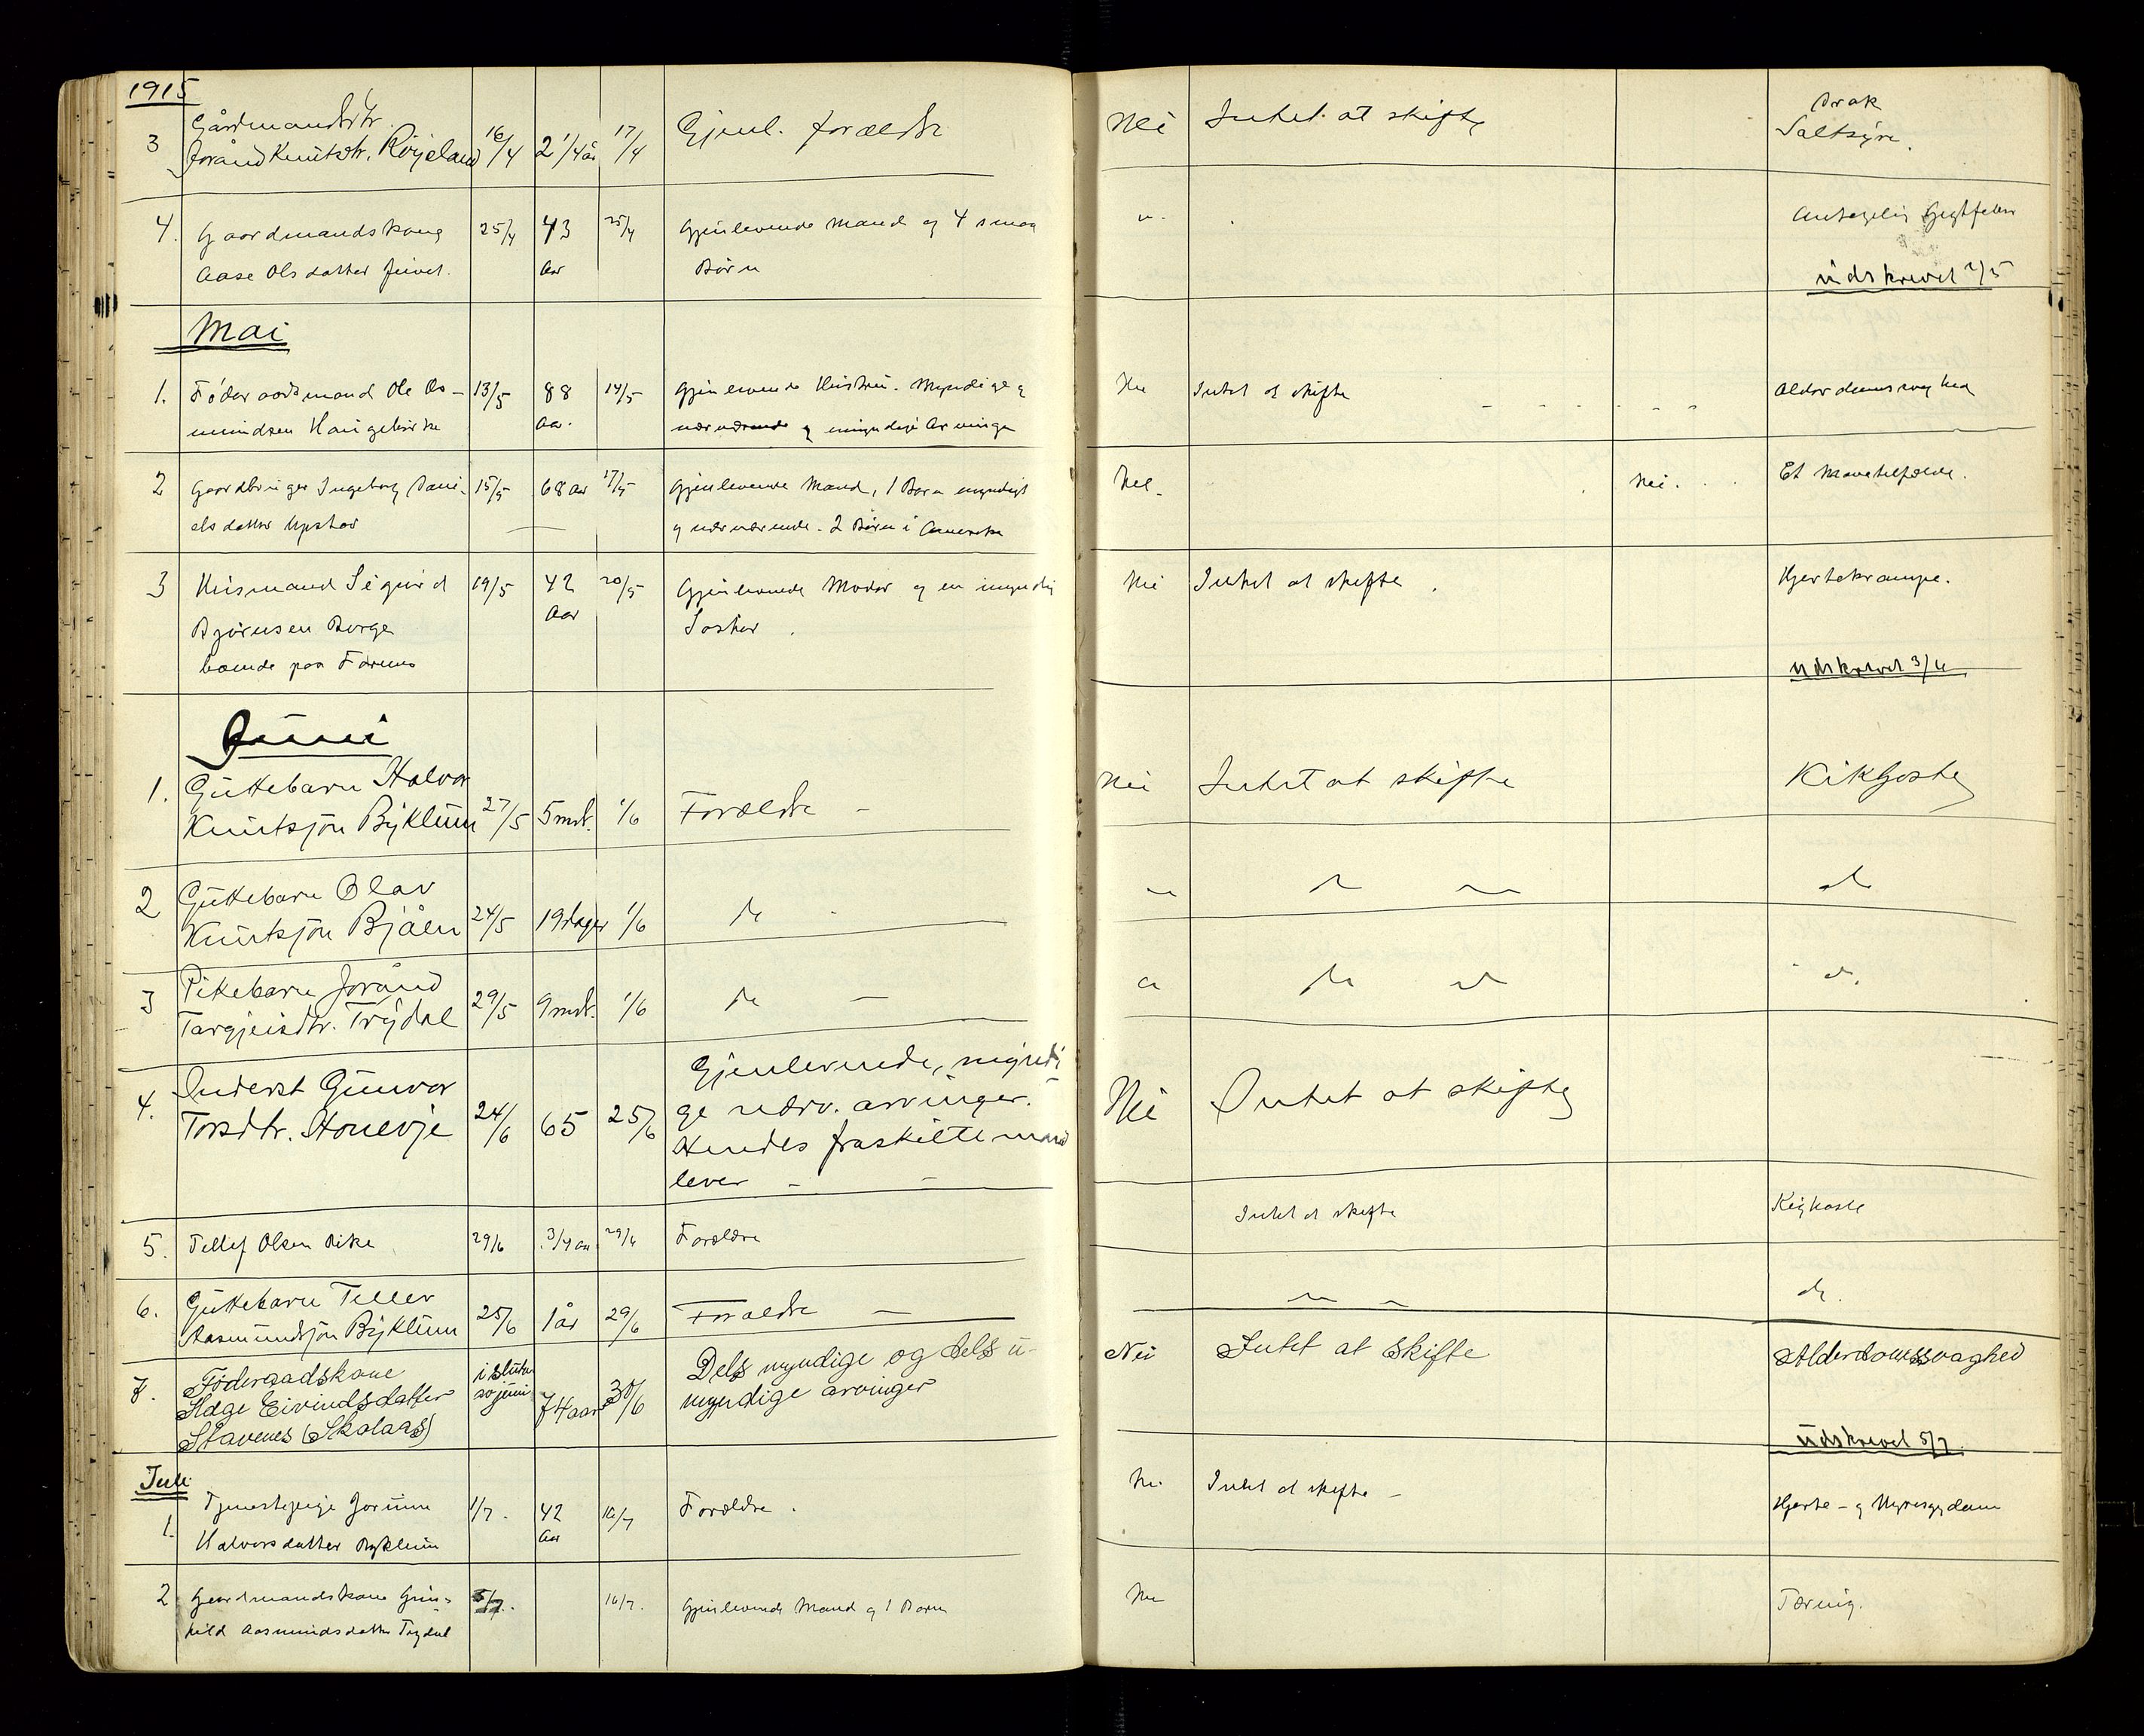 1915
3 Gårdmandsdtr. 16/4 2 1/4 år 17/4 Gjenl. forældre Nei Intet at skifte Drak
Jorånd Knutsdtr. Røyeland Saltsyre.
4. Gaardmandskone 25/4 43 25/4 Gjenlevende Mand og 4 smaa Antagelig Gigtfeber
Aase Olsdatter Jeivet. Aar Børn
Udskrevet 2/5
Mai
1. Føderaadsmand Ole Os- 13/5 88 14/5 Gjenlevende Hustru. Myndige og Nei Intet at skifte Alderdomssvaghed
mundsen Haugebirke Aar. nærværende og umyndige Arvinger
2 Gaardbruger Ingeborg Dani- 15/5 68 aar 17/5 Gjenlevende Mand, 1 Barn myndigt Nei. Nei. Et Mavetilfælde.
elsdatter og nærværende. 2 Børn i Amerika
3 Husmand Sigurd 19/5 42 20/5 Gjenlevende Moder og en myndig Nei Intet at skifte Hjertekrampe.
Bjørnsen Berge Aar Søster.
boende paa
Udskrevet 3/6
Juni
1. Guttebarn Halvor 27/5 5 mdr. 1/6 Forældre Nei Intet at skifte Kikhoste
Knutsjøn Byklum
2 Guttebarn Olav 24/5 19 dager 1/6 do do
Knutsjøn Bjåen
3 Pikebarn Jorånd 29/5 9 mdr. 1/6 do do do.
Targjeisdtr. Trydal
4. Inderst Gunvor 24/6 65 25/6 Gjenlevende, myndi-
Torsdtr. Honevje ge nærv. arvinger. Nei Intet at skifte
Hendes fraskilte mand
lever
5. Tellef Olsen Rike 29/6 3/4 aar 29/6 Forældre Intet at skifte Kighoste
6. Guttebarn Tellev 25/6 1 år 29/6 Forældre do.
Aasmundsjøn Byklum
7. Føderaadskone i slutn. 74 aar 30/6 Dels myndige og dels u- Nei Intet at skifte Alderdomssvaghed
Hæge Eivindsdatter av juni myndige arvinger
Stavenes (Skolaas)
Udskrevet 5/7.
Juli
1. Tjenestepige Jorunn 1/7. 42 10/7 Forældre. Nei Intet at skifte - Hjerte- og Nyresygdom
Halvorsdatter Byklum Aar
2 Gaardmandskone Gun- 5/7. 10/7. Gjenlevende Mand og 1 Barn Nei Tæring.
hild Aasmundsdatter Trydal